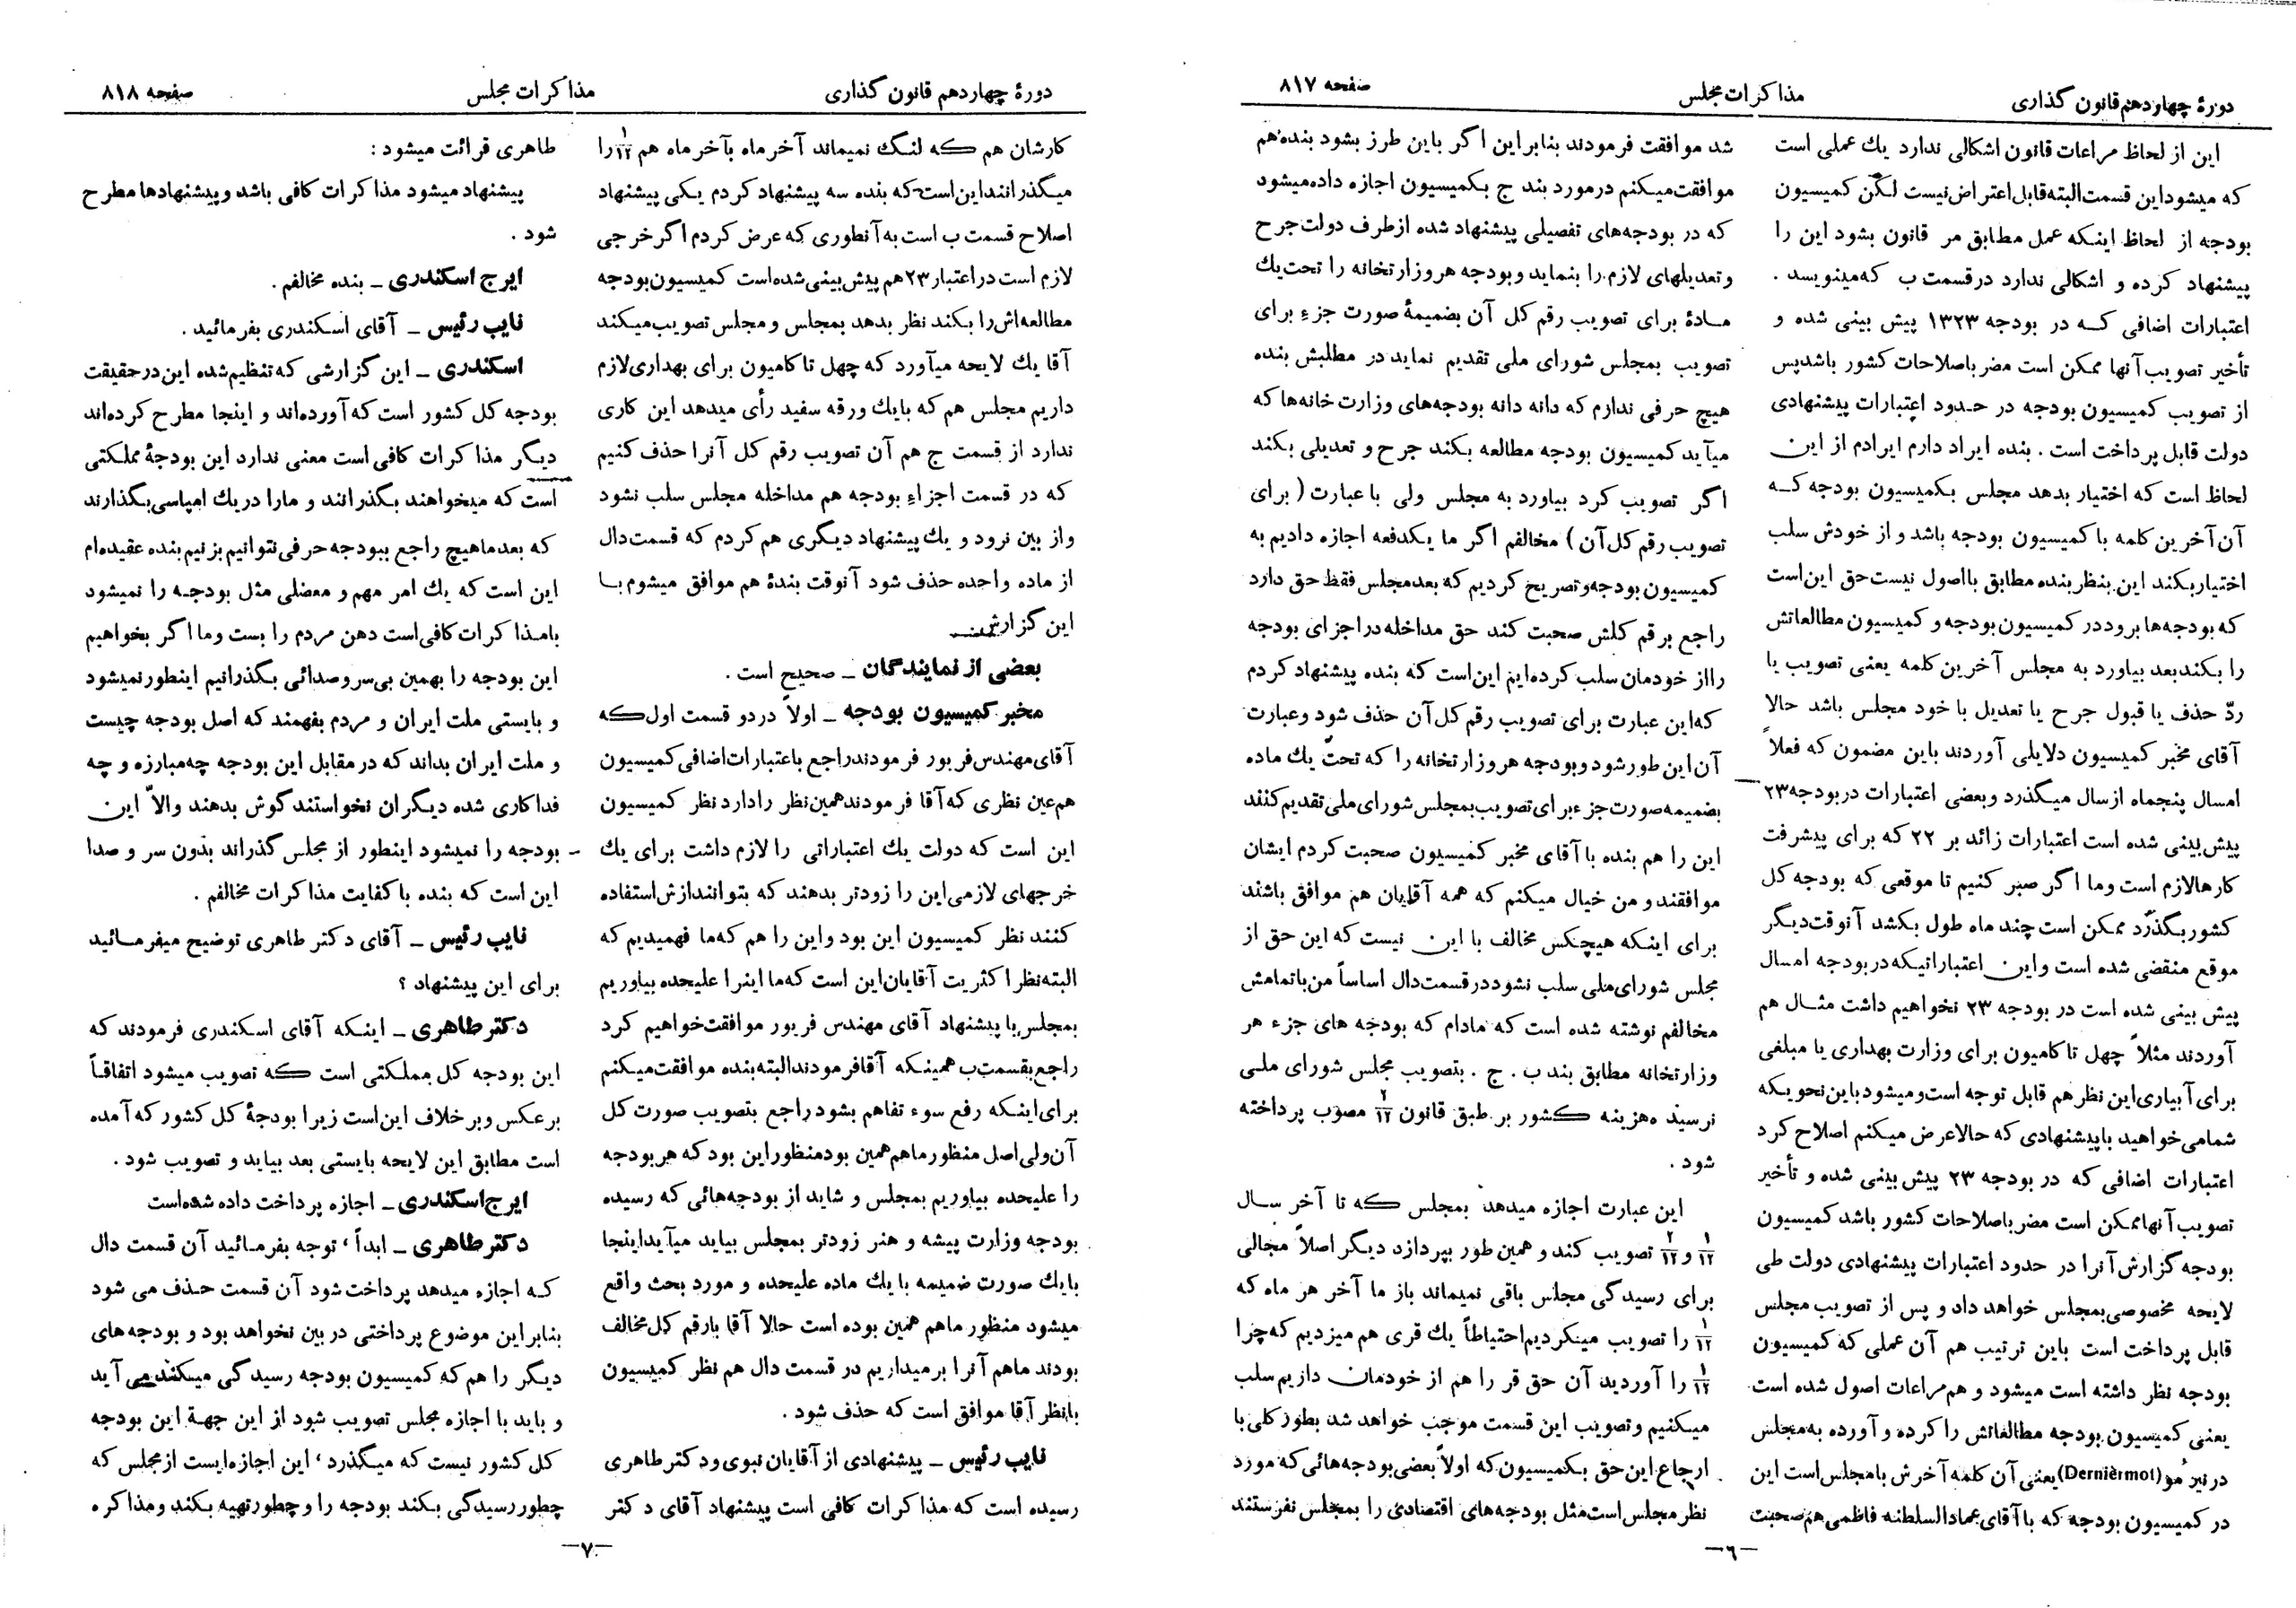 دورهٔ چهاردهم قانون گذاری
مذاکرات مجلس
صفحه ۸۱۷
این از لحاظ مراعات قانون اشکالی ندارد یك عملی است
که میشود این قسمت البته قابل اعتراض نیست لکن کمیسیون
بودجه از لحاظ اینکه عمل مطابق مر قانون بشود این را
پیشنهاد کرده و اشکالی ندارد در قسمت ب که مینویسد .
اعتبارات اضافی که در بودجه ۱۳۲۳ پیش بینی شده و
تأخیر تصویب آنها ممکن است مضر باصلاحات کشور باشد پس
از تصویب کمیسیون بودجه در حدود اعتبارات پیشنهادی
دولت قابل پرداخت است . بنده ایراد دارم ایرادم از این
لحاظ است که اختیار بدهد مجلس بکمیسیون بودجه که
آن آخرین کلمه با کمیسیون بودجه باشد و از خودش سلب
اختیار بکند این بنظر بنده مطابق با اصول نیست حق این است
که بودجه‌ها برود در کمیسیون بودجه و کمیسیون مطالعاتش
را بکند بعد بیاورد به مجلس آخرین کلمه یعنی تصویب یا
ردّ حذف یا قبول جرح یا تعدیل با خود مجلس باشد حالا
آقای مخبر کمیسیون دلایلی آوردند باین مضمون که فعلاً
امسال پنجماه از سال میگذرد و بعضی اعتبارات در بودجه ۲۳
پیش بینی شده است اعتبارات زائد بر ۲۲ که برای پیشرفت
کارها لازم است و ما اگر صبر کنیم تا موقعی که بودجه کل
کشور بگذرد ممکن است چند ماه طول بکشد آنوقت دیگر
موقع منقضی شده است و این اعتباراتیکه در بودجه امسال
پیش بینی شده است در بودجه ۲۳ نخواهیم داشت مثال هم
آوردند مثلاً چهل تا کامیون برای وزارت بهداری یا مبلغی
برای آبیاری این نظر هم قابل توجه است و میشود باین نحویکه
شما می خواهید با پیشنهادی که حالا عرض میکنم اصلاح کرد
اعتبارات اضافی که در بودجه ۲۳ پیش بینی شده و تأخیر
تصویب آنها ممکن است مضر باصلاحات کشور باشد کمیسیون
بودجه گزارش آنرا در حدود اعتبارات پیشنهادی دولت طی
لایحه مخصوصی بمجلس خواهد داد و پس از تصویب مجلس
قابل پرداخت است باین ترتیب هم آن عملی که کمیسیون
بودجه نظر داشته است میشود و هم مراعات اصول شده است
یعنی کمیسیون بودجه مطالعاتش را کرده و آورده به مجلس
درنیر مو (Dernièrmot) یعنی آن کلمه آخرش با مجلس است این
در کمیسیون بودجه که با آقای عمادالسلطنه فاطمی هم صحبت
شد موافقت فرمودند بنابراین اگر باین طرز بشود بنده هم
موافقت میکنم در مورد بند ج بکمیسیون اجازه داده میشود
که در بودجه‌های تفصیلی پیشنهاد شده از طرف دولت جرح
و تعدیلهای لازم را بنماید و بودجه هر وزارتخانه را تحت یك
مادهٔ برای تصویب رقم کل آن بضمیمهٔ صورت جزء برای
تصویب بمجلس شورای ملی تقدیم نماید در مطلبش بنده
هیچ حرفی ندارم که دانه دانه بودجه‌های وزارت خانه‌ها که
میآید کمیسیون بودجه مطالعه بکند جرح و تعدیلی بکند
اگر تصویب کرد بیاورد به مجلس ولی با عبارت ( برای
تصویب رقم کل آن ) مخالفم اگر ما یکدفعه اجازه دادیم به
کمیسیون بودجه و تصریح کردیم که بعد مجلس فقط حق دارد
راجع برقم کلش صحبت کند حق مداخله در اجزای بودجه
را از خودمان سلب کرده‌ایم این است که بنده پیشنهاد کردم
که این عبارت برای تصویب رقم کل آن حذف شود و عبارت
آن این طور شود و بودجه هر وزارتخانه را که تحت یك ماده
بضمیمه صورت جزء برای تصویب بمجلس شورای ملی تقدیم کنند
این را هم بنده با آقای مخبر کمیسیون صحبت کردم ایشان
موافقند و من خیال میکنم که همه آقایان هم موافق باشند
برای اینکه هیچکس مخالف با این نیست که این حق از
مجلس شورای ملی سلب نشود در قسمت دال اساساً من باتمامش
مخالفم نوشته شده است که مادام که بودجه های جزء هر
وزارتخانه مطابق بند ب . ج . بتصویب مجلس شورای ملی
نرسیده هزینه کشور بر طبق قانون ۲/۱۲ مصوب پرداخته
شود .
این عبارت اجازه میدهد بمجلس که تا آخر سال
۱/۱۲ و ۲/۱۲ تصویب کند و همین طور بپردازد دیگر اصلاً مجالی
برای رسیدگی مجلس باقی نمیماند باز ما آخر هر ماه که
۱/۱۲ را تصویب میکردیم احتیاطاً یك قری هم میزدیم که چرا
۱/۱۲ را آوردید آن حق قر را هم از خودمان داریم سلب
میکنیم و تصویب این قسمت موجب خواهد شد بطور کلی با
ارجاع این حق بکمیسیون که اولاً بعضی بودجه‌هائی که مورد
نظر مجلس است مثل بودجه‌های اقتصادی را بمجلس نفرستند
—۶—
دورهٔ چهاردهم قانون گذاری
مذاکرات مجلس
صفحه ۸۱۸
کارشان هم که لنگ نمیماند آخر ماه بآخر ماه هم ۱/۱۲ را
میگذرانند این است که بنده سه پیشنهاد کردم یکی پیشنهاد
اصلاح قسمت ب است به آنطوری که عرض کردم اگر خرجی
لازم است در اعتبار ۲۳ هم پیش بینی شده است کمیسیون بودجه
مطالعه‌اش را بکند نظر بدهد بمجلس و مجلس تصویب میکند
آقا یك لایحه میآورد که چهل تا کامیون برای بهداری لازم
داریم مجلس هم که با یك ورقه سفید رأی میدهد این کاری
ندارد از قسمت ج هم آن تصویب رقم کل آنرا حذف کنیم
که در قسمت اجزاء بودجه هم مداخله مجلس سلب نشود
و از بین نرود و یك پیشنهاد دیگری هم کردم که قسمت دال
از ماده واحده حذف شود آنوقت بندهٔ هم موافق میشوم با
این گزارش
بعضی از نمایندگان – صحیح است .
مخبر کمیسیون بودجه – اولاً در دو قسمت اول که
آقای مهندس فریور فرمودند راجع با اعتبارات اضافی کمیسیون
هم عین نظری که آقا فرمودند همین نظر را دارد نظر کمیسیون
این است که دولت یك اعتباراتی را لازم داشت برای یك
خرجهای لازمی این را زودتر بدهند که بتوانند ازش استفاده
کنند نظر کمیسیون این بود و این را هم که ما فهمیدیم که
البته نظر اکثریت آقایان این است که ما اینرا علیحده بیاوریم
بمجلس با پیشنهاد آقای مهندس فریور موافقت خواهیم کرد
راجع بقسمت ب همینکه آقا فرمودند البته بنده موافقت میکنم
برای اینکه رفع سوء تفاهم بشود راجع بتصویب صورت کل
آن ولی اصل منظور ما هم همین بود منظور این بود که هر بودجه
را علیحده بیاوریم بمجلس و شاید از بودجه‌هائی که رسیده
بودجه وزارت پیشه و هنر زودتر بمجلس بیاید میآید اینجا
با یك صورت ضمیمه با یك ماده علیحده و مورد بحث واقع
میشود منظور ما هم همین بوده است حالا آقا با رقم کل مخالف
بودند ما هم آنرا برمیداریم در قسمت دال هم نظر کمیسیون
با نظر آقا موافق است که حذف شود .
نایب رئیس – پیشنهادی از آقایان نبوی و دکتر طاهری
رسیده است که مذاکرات کافی است پیشنهاد آقای دکتر
طاهری قرائت میشود :
پیشنهاد میشود مذاکرات کافی باشد و پیشنهادها مطرح
شود .
ایرج اسکندری – بنده مخالفم .
نایب رئیس – آقای اسکندری بفرمائید .
اسکندری – این گزارشی که تنظیم شده این در حقیقت
بودجه کل کشور است که آورده‌اند و اینجا مطرح کرده‌اند
دیگر مذاکرات کافی است معنی ندارد این بودجهٔ مملکتی
است که میخواهند بگذرانند و ما را در یك امپاسی بگذارند
که بعد ما هیچ راجع ببودجه حرفی نتوانیم بزنیم بنده عقیده‌ام
این است که یك امر مهم و معضلی مثل بودجه را نمیشود
با مذاکرات کافی است دهن مردم را بست و ما اگر بخواهیم
این بودجه را بهمین بی سر و صدائی بگذرانیم اینطور نمیشود
و بایستی ملت ایران و مردم بفهمند که اصل بودجه چیست
و ملت ایران بداند که در مقابل این بودجه چه مبارزه و چه
فداکاری شده دیگران نخواستند گوش بدهند والاّ این
بودجه را نمیشود اینطور از مجلس گذراند بدون سر و صدا
این است که بنده با کفایت مذاکرات مخالفم .
نایب رئیس – آقای دکتر طاهری توضیح میفرمائید
برای این پیشنهاد ؟
دکتر طاهری – اینکه آقای اسکندری فرمودند که
این بودجه کل مملکتی است که تصویب میشود اتفاقاً
برعکس و برخلاف این است زیرا بودجهٔ کل کشور که آمده
است مطابق این لایحه بایستی بعد بیاید و تصویب شود .
ایرج اسکندری – اجازه پرداخت داده شده است
دکتر طاهری – ابداً ، توجه بفرمائید آن قسمت دال
که اجازه میدهد پرداخت شود آن قسمت حذف می شود
بنابراین موضوع پرداختی در بین نخواهد بود و بودجه های
دیگر را هم که کمیسیون بودجه رسیدگی میکند می آید
و باید با اجازه مجلس تصویب شود از این جهة این بودجه
کل کشور نیست که میگذرد ، این اجازه‌ایست از مجلس که
چطور رسیدگی بکند بودجه را و چطور تهیه بکند و مذاکره
—۷—